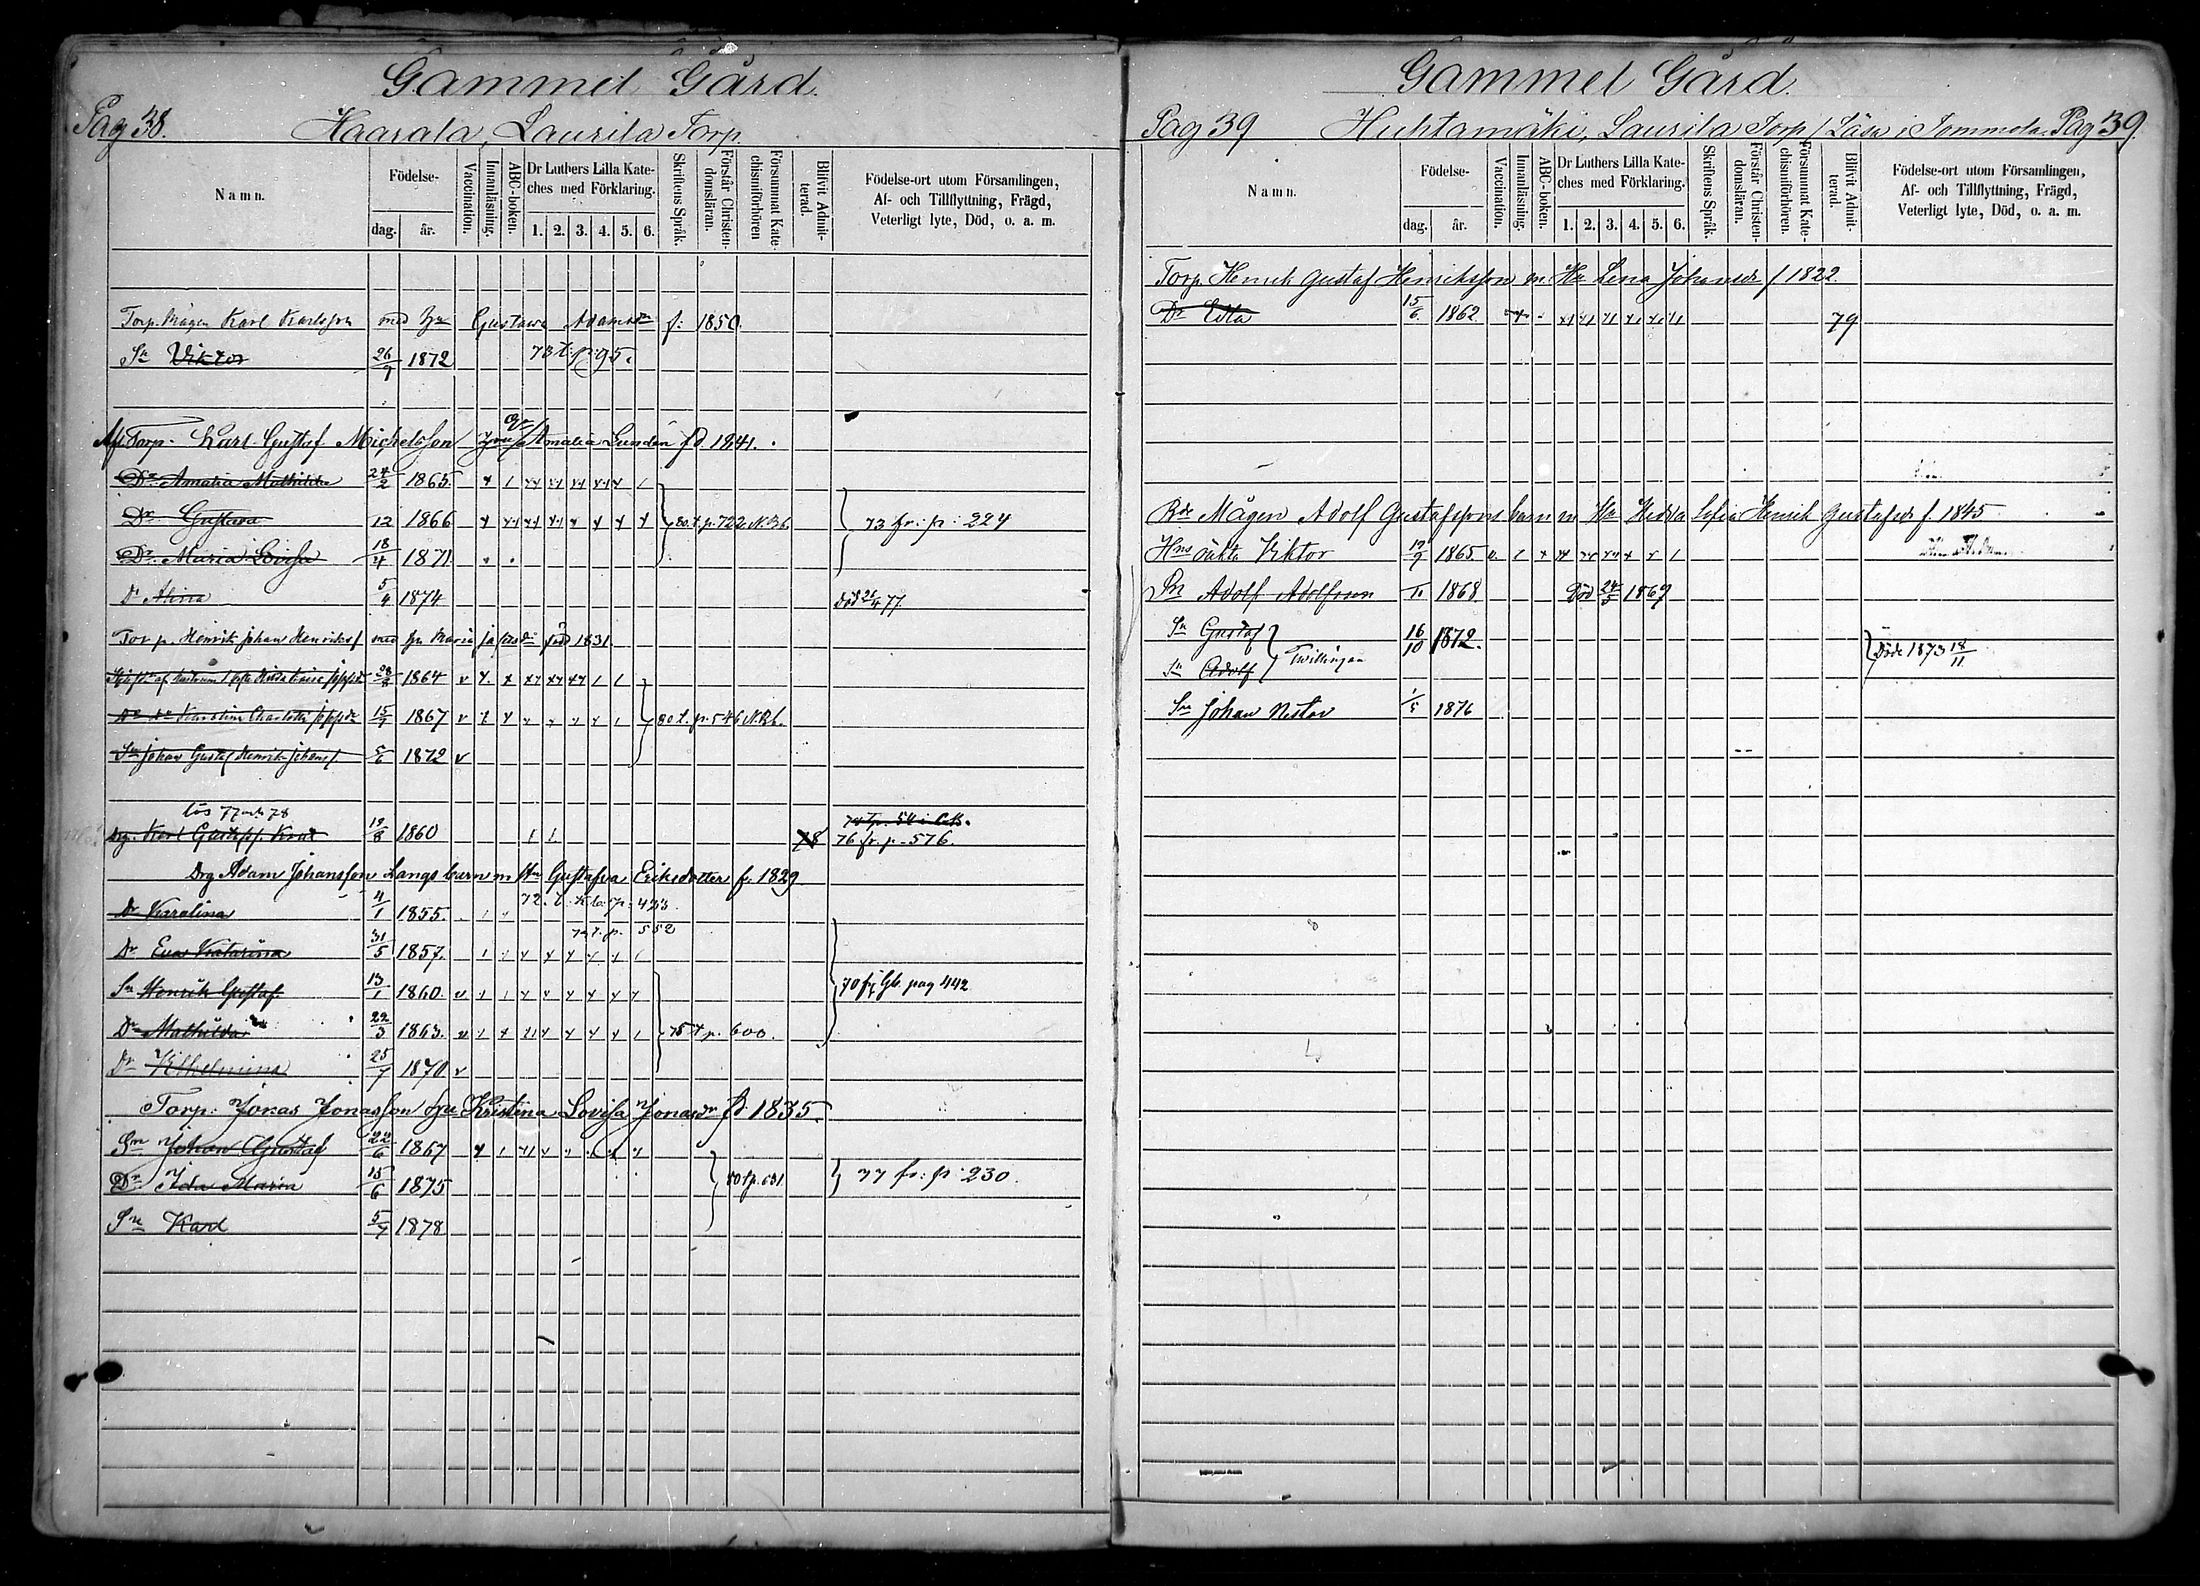 Gammel Gård.
Pag 38. Haarala, Laurila Torp.
Namn.
Födelse-
dag. år.
Vaccination.
Innanläsning.
ABC-boken.
Dr Luthers Lilla Kate-
ches med Förklaring.
1. 2. 3. 4. 5. 6.
Skriftens Språk.
Förstår Christen-
domsläran.
Försummat Kate-
chismiförhören
Blifvit Admit-
terad.
Födelse-ort utom Församlingen,
Af- och Tillflyttning, Frägd,
Veterligt lyte, Död, o. a. m.
Torp. Mågen Karl Karlsson med Hu Gustava Adamsdr f: 1850.
Sn Viktor 26/9 1872 73 t. p. 95.
Afl. Torp. Karl Gustaf Michelsson Amalia Lunden fd 1841.
Dr Amalia Mathilda 24/2 1865
Dr Gustava 12 1866 80. t. p. 722 N.B. 73 fr: p: 224
Dr Maria Lovisa 18/4 1871
Dr Alina 5/4 1874 död 21/4 77.
Torp. Henrik Johan Henrikss med hu Maria född 1831.
1864
Karolina Charlotta 15/7 1867 80 t. p. 546 N.B.
Sn Johan Gustaf Henrik Johanss. 5/6 1872
läs 77 och 78
Drg. Karl Gustafss. 19/8 1860 78 76 fr. p. 576.
Drg Adam Johansson Langs barn m Hu Gustafva Eriksdotter f. 1829
Dr Karolina 4/1 1855. 72. t. p. 423.
Dr Eva Katarina 31/5 1857. t. p. 552
Sn Henrik Gustaf 13/1 1860. 70 fr Gb. pag 442
Dr Mathilda 22/3 1863. 75 t p. 600.
Dr Vilhelmina 25/7 1870
Torp. Jonas Jonasson Hu Kristina Lovisa Jonasdr fd 1835.
Sn Johan Gustaf 22/6 1867
Dr Ida Maria 15/6 1875 80 t p. 631 77 fr: p: 230.
Sn Karl 5/7 1878
Gammel Gård.
Pag 39 Huhtamäki, Laurila Torp / Läsa i Tommola. Pag 39.
Namn.
Födelse-
dag. år.
Vaccination.
Innanläsning.
ABC-boken.
Dr Luthers Lilla Kate-
ches med Förklaring.
1. 2. 3. 4. 5. 6.
Skriftens Språk.
Förstår Christen-
domsläran.
Försummat Kate-
chismiförhören.
Blifvit Admit-
terad.
Födelse-ort utom Församlingen,
Af- och Tillflyttning, Frägd,
Veterligt lyte, Död, o. a. m.
Torp. Henrik Gustaf Henriksson m. Hu Lena Johansdr f 1822.
Dr Edla 15/6 1862 79
Rde Mågen Adolf Gustafssons barn m Hu Hedda Sofia Henrik Gustafsdr f. 1845
Hns oäkta Viktor 19/9 1865
Sn Adolf Adolfsson 1868 Död 24/5 1869
Sn Gustaf 16/10 1872. Tvillingar Döde 1873 18/11
Sn Adolf
Sn Johan Nestor 1/5 1876